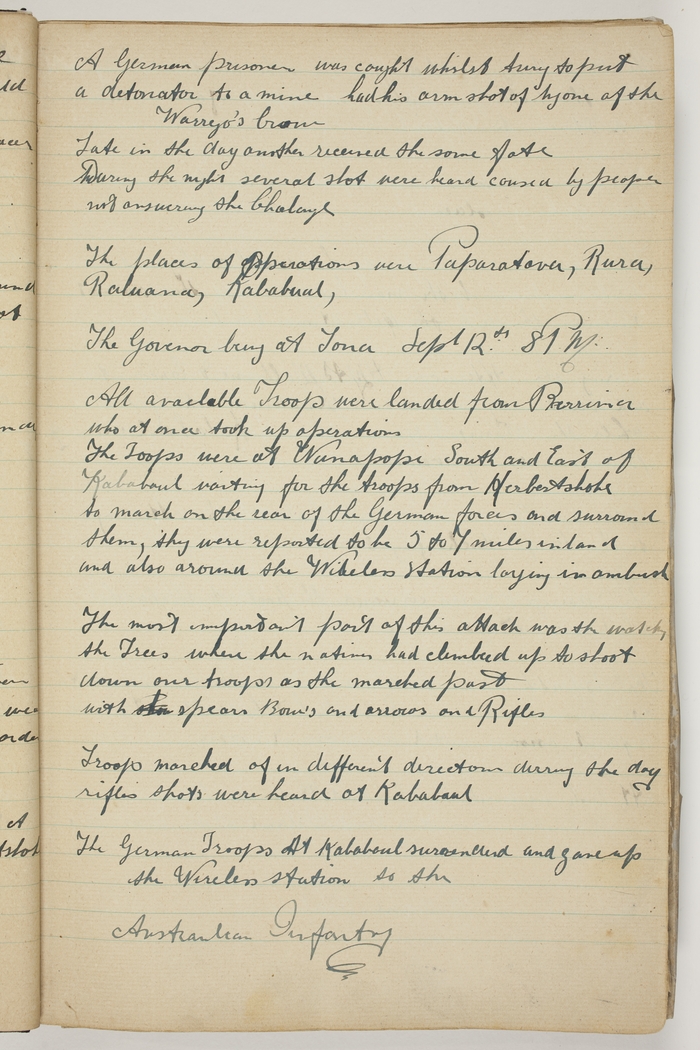 A German prisoner was caught whilst trying to put
a detonator to a mine had his arm shot of by one of the
Warrego's crew
Late in the day another received the same fate
During the night several shot were heard caused by people
not answering the Chalange
The places of Opperations were Paparatava, Rura,
Raluana, Kababaul,
The Govenor being at Toma Sept 12th 8 P.M.
All available Troops were landed from Berrima
who at once took up operations
The Troops were at Wunapopi South and East of
Kababaul waiting for the troops from Herbertshohe
to march on the rear of the German forces and surround
them, they were reported to be 5 to 7 miles inland
and also around the Wireless Station laying in ambush
The most important part of this attack was the watching
the Trees where the natives had climbed up to shoot
down our troops as the marched past
with spears Bow's and arrows and Rifles
Troops marched of in different direction durring the day
rifles shots were heard at Kababaul
The German Troops At Kababaul surrenderd and gave up
the Wireless station to the
Australian Infantry